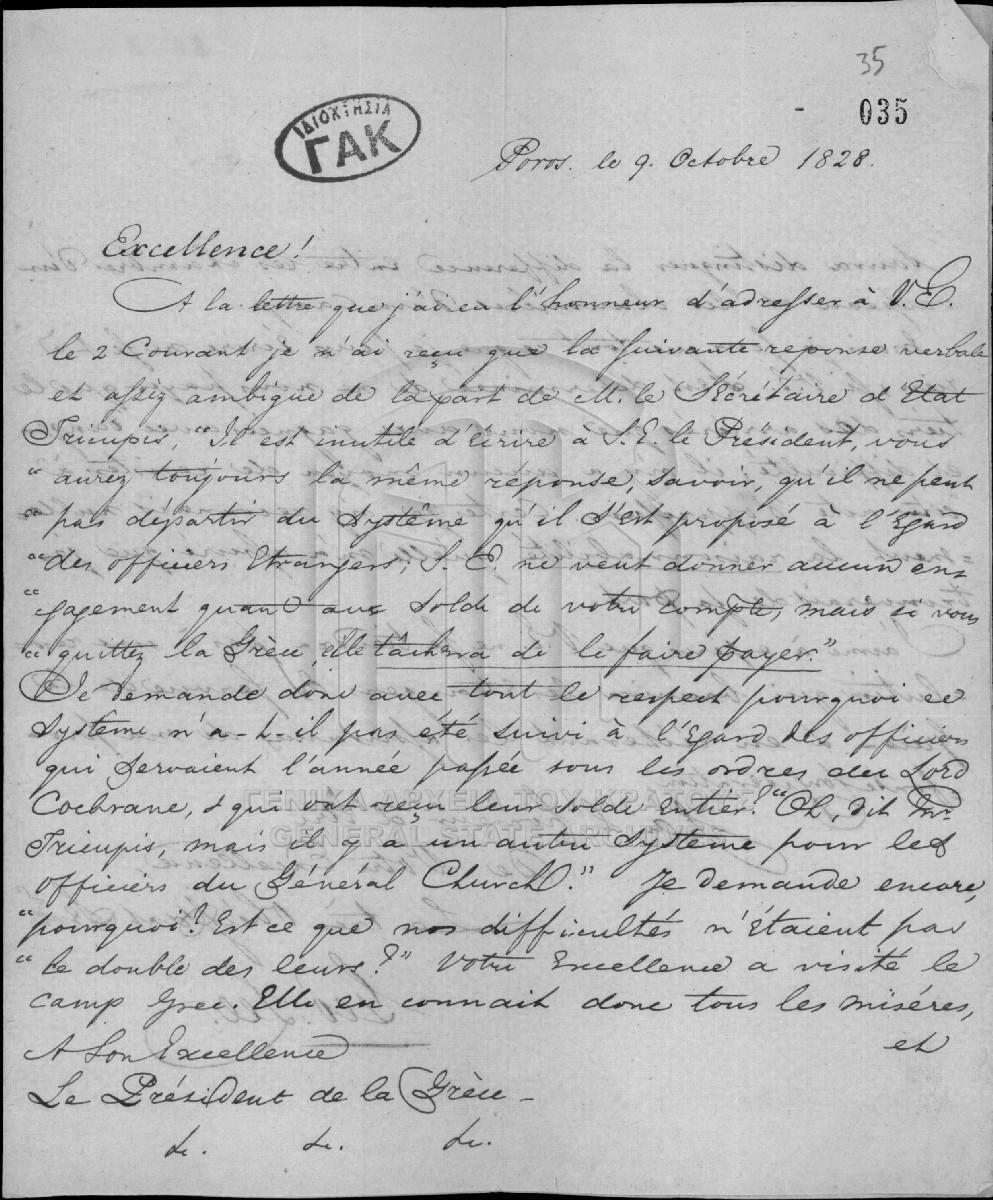 35
035
ΙΔΙΟΧΤΗΣΙΑ
ΓΑΚ
Poros. le 9. Octobre 1828.
Excellence!
A la lettre que j'ai eu l'honneur d'adresser à V. E.
le 2 Courant je n'ai reçu que la suivante reponse verbale
et assez ambigue de la part de M. le Sécrétaire d'Etat
Tricupis, "Il est inutile d'écrire à S. E. le Président, vous
"aurez toujours la même réponse, savoir, qu'il ne peut
"pas départir du système qu'il s'est proposé à l'Egard
"des officiers Etrangers; S. E. ne veut donner aucun en=
"gagement quand aux solde de votre compte, mais si vous
"quittez la Grèce, elle tâchera de le faire payer."
Je demande donc avec tout le respect pourquoi ce
système n'a-t-il pas été suivi à l'Egard des officiers
qui servaient l'année passée sous les ordres du Lord
Cochrane, & qui ont reçu leur solde entier? "Oh, dit Mr.
Tricupis, mais il y a un autre système pour les
officiers du Général Church." Je demande encore,
"pourquoi? Est ce que nos difficultés n'étaient pas
"le double des leurs?" Votre Excellence a visité le
camp Grec. Elle en connait donc tous les miséres,
et
A Son Excellence
Le Président de la Grèce –
&. &. &.
ΓΕΝΙΚΑ ΑΡΧΕΙΑ ΤΟΥ ΚΡΑΤΟΥΣ
GENERAL STATE ARCHIVES